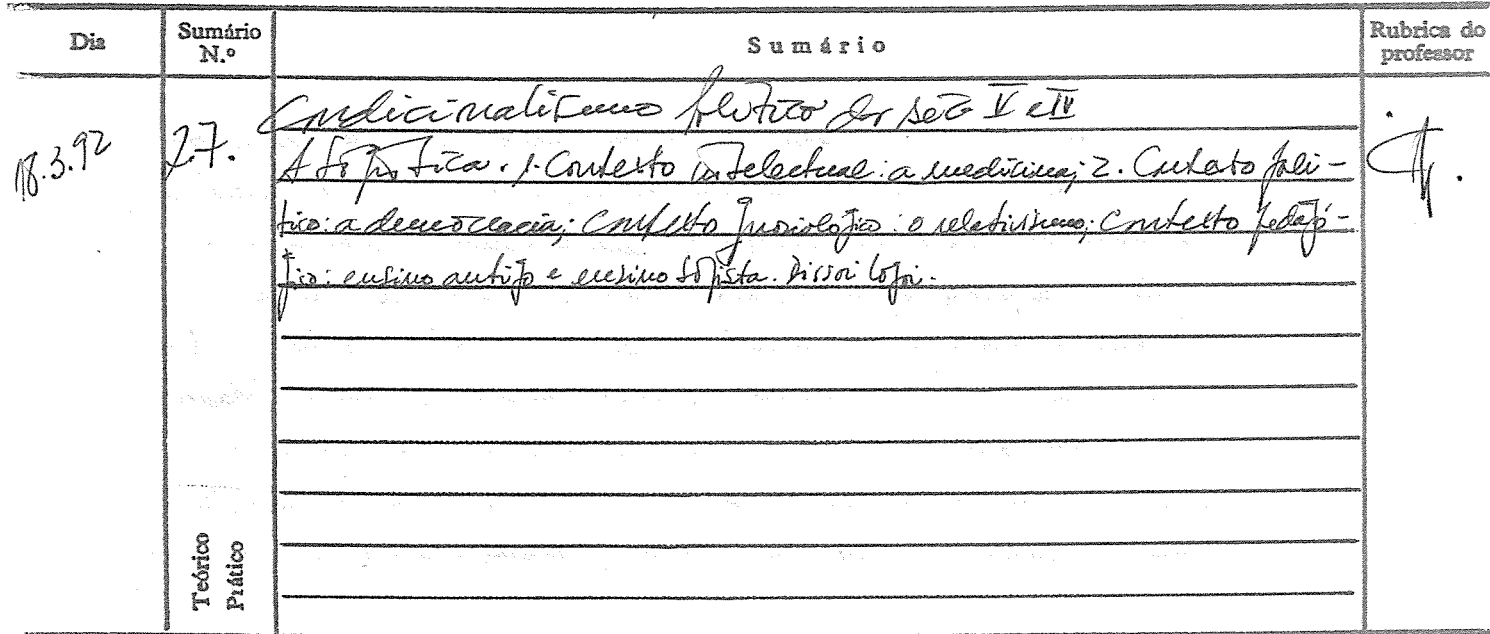 Dia
Sumário N.º
Sumário
Rubrica do professor
18.3.92
27.
Condicionalismo político dos sécs V e IV
A Sofística. 1. Contexto intelectual: a medicina; 2. Contexto polí-
tico: a democracia; Contexto gnosiológico: o relativismo; Contexto pedagó-
gico: ensino antigo e ensino sofista. Dissoi logoi.
Teórico
Prático